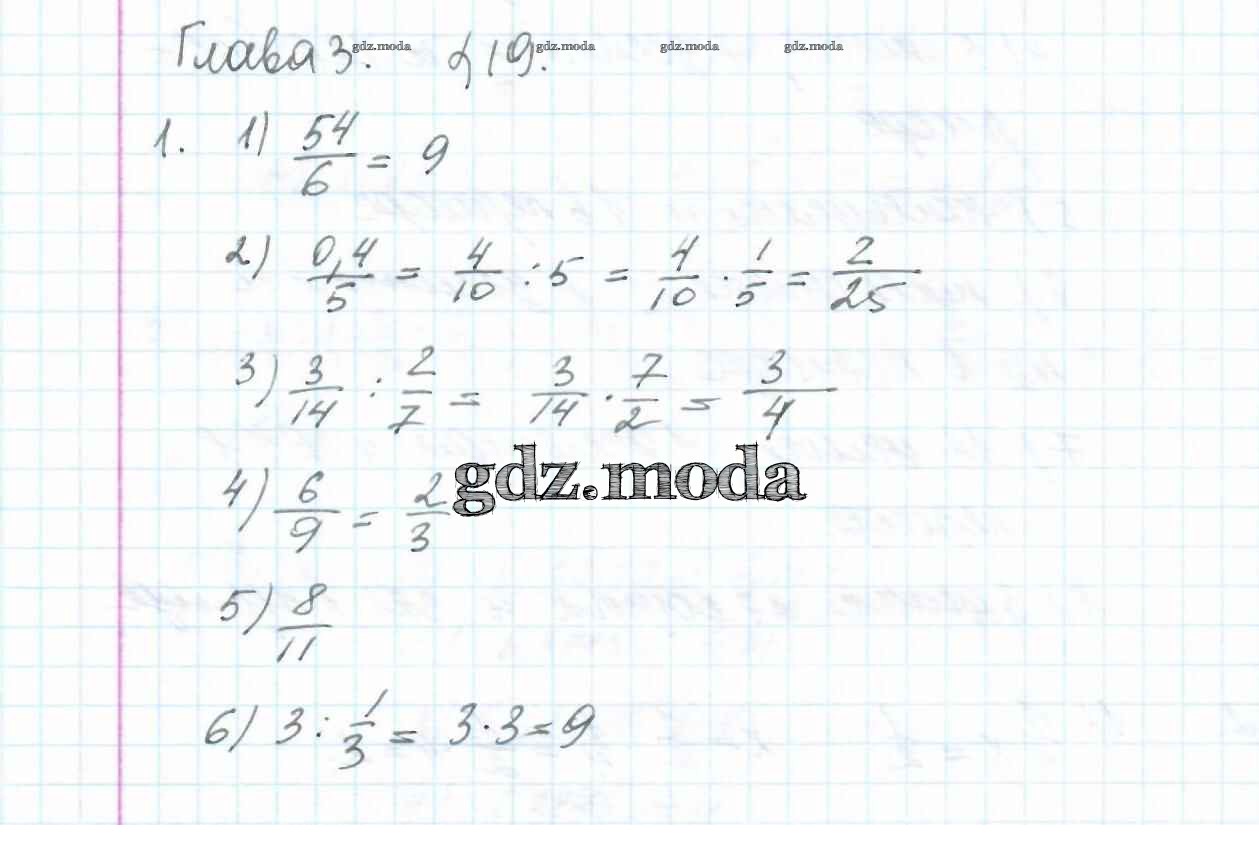 Глава 3. §19.
gdz.moda gdz.moda gdz.moda gdz.moda
1. 1) 54/6 = 9
2) 0,4/5 = 4/10 : 5 = 4/10 · 1/5 = 2/25
3) 3/14 : 2/7 = 3/14 · 7/2 = 3/4
gdz.moda
4) 6/9 = 2/3
5) 8/11
6) 3 : 1/3 = 3 · 3 = 9